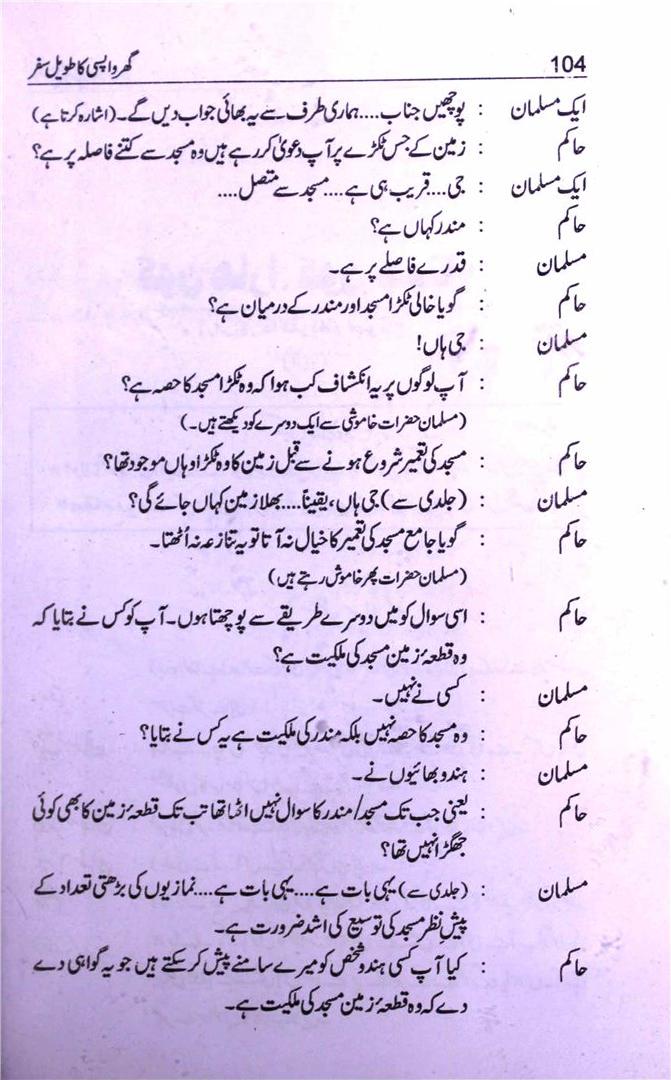 104 گھر واپسی کا طویل سفر
ایک مسلمان : پوچھیں جناب.... ہماری طرف سے یہ بھائی جواب دیں گے۔ (اشارہ کرتا ہے)
حاکم : زمین کے جس ٹکڑے پر آپ دعویٰ کر رہے ہیں وہ مسجد سے کتنے فاصلہ پر ہے؟
ایک مسلمان : جی.... قریب ہی ہے.... مسجد سے متصل....
حاکم : مندر کہاں ہے؟
مسلمان : قدرے فاصلے پر ہے۔
حاکم : گویا خالی ٹکڑا مسجد اور مندر کے درمیان ہے؟
مسلمان : جی ہاں!
حاکم : آپ لوگوں پر یہ انکشاف کب ہوا کہ وہ ٹکڑا مسجد کا حصہ ہے؟
(مسلمان حضرات خاموشی سے ایک دوسرے کو دیکھتے ہیں۔)
حاکم : مسجد کی تعمیر شروع ہونے سے قبل زمین کا وہ ٹکڑا وہاں موجود تھا؟
مسلمان : (جلدی سے) جی ہاں، یقیناً.... بھلا زمین کہاں جائے گی؟
حاکم : گویا جامع مسجد کی تعمیر کا خیال نہ آتا تو یہ تنازعہ نہ اُٹھتا۔
(مسلمان حضرات پھر خاموش رہتے ہیں)
حاکم : اسی سوال کو میں دوسرے طریقے سے پوچھتا ہوں۔ آپ کو کس نے بتایا کہ
وہ قطعۂ زمین مسجد کی ملکیت ہے؟
مسلمان : کسی نے نہیں۔
حاکم : وہ مسجد کا حصہ نہیں بلکہ مندر کی ملکیت ہے یہ کس نے بتایا؟
مسلمان : ہندو بھائیوں نے۔
حاکم : یعنی جب تک مسجد/مندر کا سوال نہیں اٹھا تھا تب تک قطعۂ زمین کا بھی کوئی
جھگڑا نہیں تھا؟
مسلمان : (جلدی سے) یہی بات ہے.... یہی بات ہے.... نمازیوں کی بڑھتی تعداد کے
پیشِ نظر مسجد کی توسیع کی اشد ضرورت ہے۔
حاکم : کیا آپ کسی ہندو شخص کو میرے سامنے پیش کر سکتے ہیں جو یہ گواہی دے
دے کہ وہ قطعۂ زمین مسجد کی ملکیت ہے۔